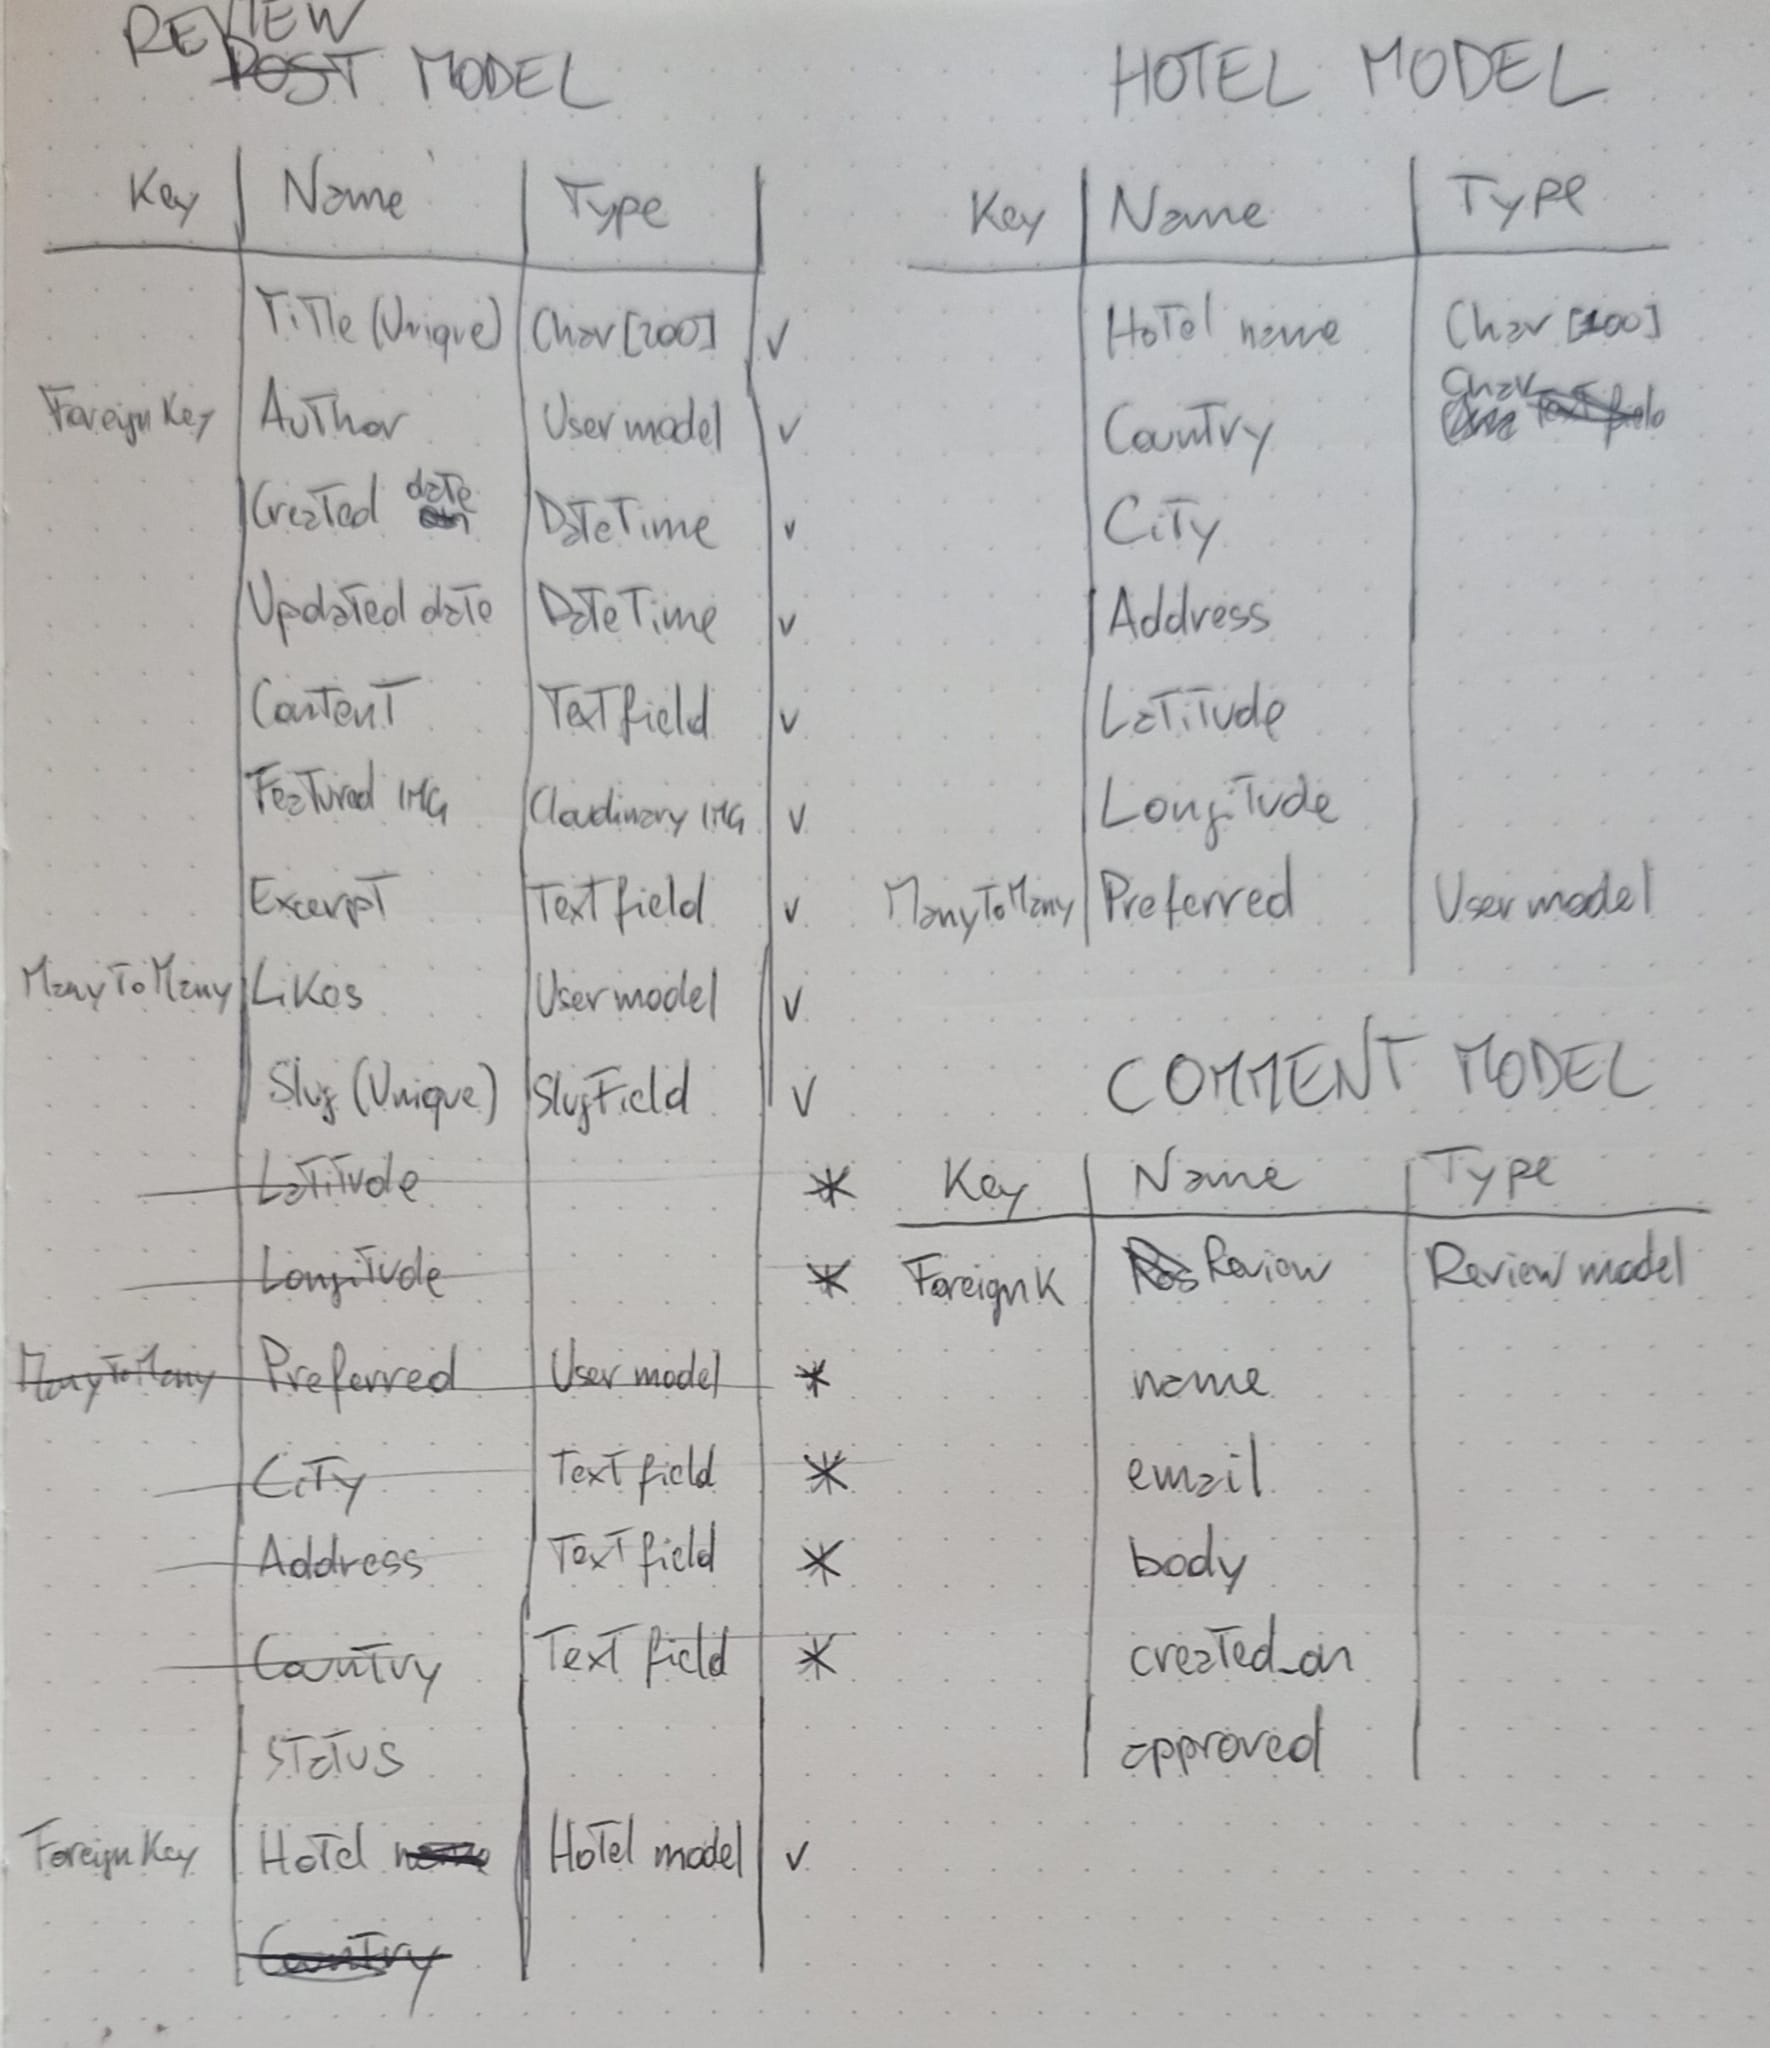 REVIEW
POST MODEL
Key Name Type
Title (Unique) Char [200] v
Foreign Key Author User model v
Created date DateTime v
Updated date DateTime v
Content Textfield v
Featured IMG Cloudinary IMG v
Excerpt Textfield v
ManyToMany Likes User model v
Slug (Unique) SlugField v
Latitude *
Longitude *
ManyToMany Preferred User model *
City Text field *
Address Text field *
Country Text field *
Status
Foreign Key Hotel name Hotel model v
Country
HOTEL MODEL
Key Name Type
Hotel name Char [100]
Country Char
Text field
City
Address
Latitude
Longitude
ManyToMany Preferred User model
COMMENT MODEL
Key Name Type
Foreign K Pos Review Review model
name
email
body
created_on
approved